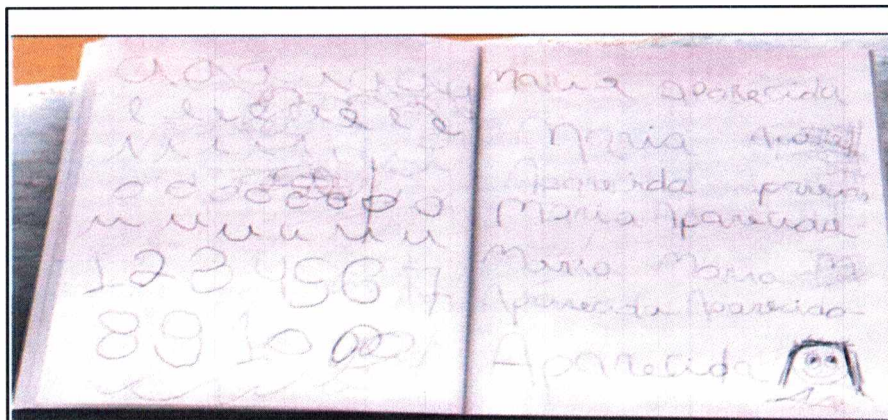 a a a
e e e e e e e e
i i i i
o o o o o o o o
u u u u u u
1 2 3 4 5 6 7
8 9 10
Maria Aparecida
Maria
Aparecida
Maria Aparecida
Maria Maria
Aparecida Aparecida
Aparecida